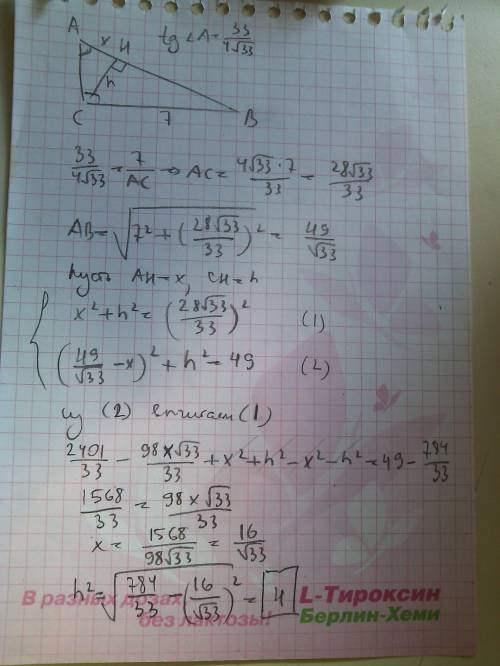 A x H tg ∠A = 33/(4√33)
h
C 7 B
33/(4√33) = 7/AC → AC = (4√33 · 7)/33 = 28√33/33
AB = √(7² + (28√33/33)²) = 49/√33
Пусть AH = x, CH = h
x² + h² = (28√33/33)² (1)
(49/√33 - x)² + h² = 49 (2)
из (2) вычитаем (1)
2401/33 - 98x√33/33 + x² + h² - x² - h² = 49 - 784/33
1568/33 = 98x√33/33
x = 1568/(98√33) = 16/√33
h² = √(784/33 - (16/√33)²) = 4
В разных дозах, L-Тироксин
без лактозы! Берлин-Хеми